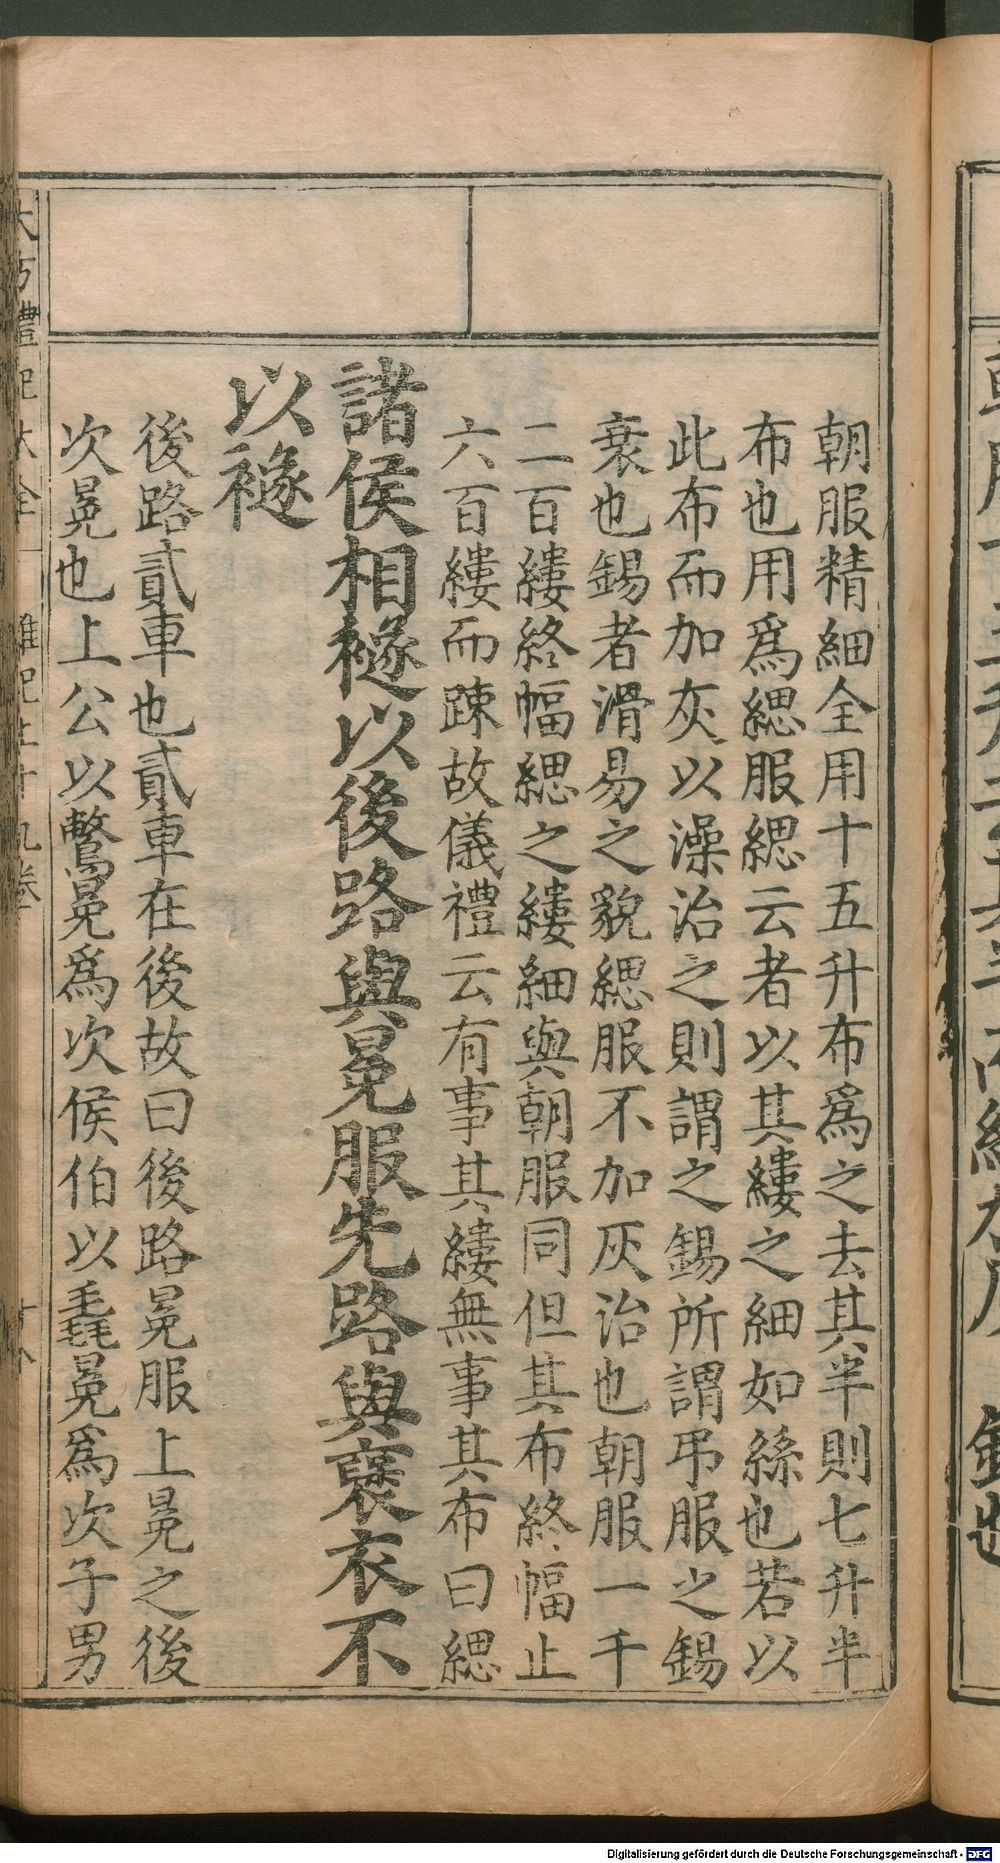 朝服精細全用十五升布爲之去其半則七升半
布也用爲緦服緦云者以其縷之細如絲也若以
此布而加灰以澡治之則謂之錫所謂弔服之錫
衰也錫者滑易之貌緦服不加灰治也朝服一千
二百縷終幅緦之縷細與朝服同但其布終幅止
六百縷而踈故儀禮云有事其縷無事其布曰緦
諸侯相襚以後路與冕服先路與襃衣不
以襚
後路貳車也貳車在後故曰後路冕服上冕之後
次冕也上公以鷩冕爲次侯伯以毳冕爲次子男
禮記大全 雜記上十九卷
Digitalisierung gefördert durch die Deutsche Forschungsgemeinschaft - DFG